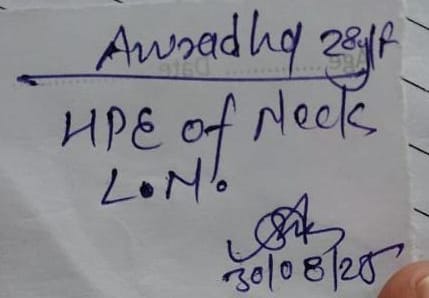 Anuradha 28y/F
HPE of Neck
L.N.
30/08/25